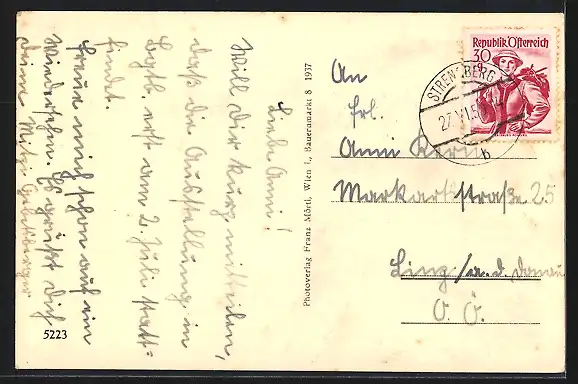 Liebe Anni!
Will Dir kurz mitteilen,
daß die Ausstellung in
erst am 2. Juli statt-
findet.
Freue mich schon auf ein
Wiedersehen. Es grüßt Dich
Deine Mitzi
5223
Photoverlag Franz Mörtl, Wien I., Bauernmarkt 8 1937
Republik Österreich
30
STRENGBERG
27.VI.5
b
An
Frl.
Anni
Markartstraße 25
Linz/a.d. Donau
O. Ö.